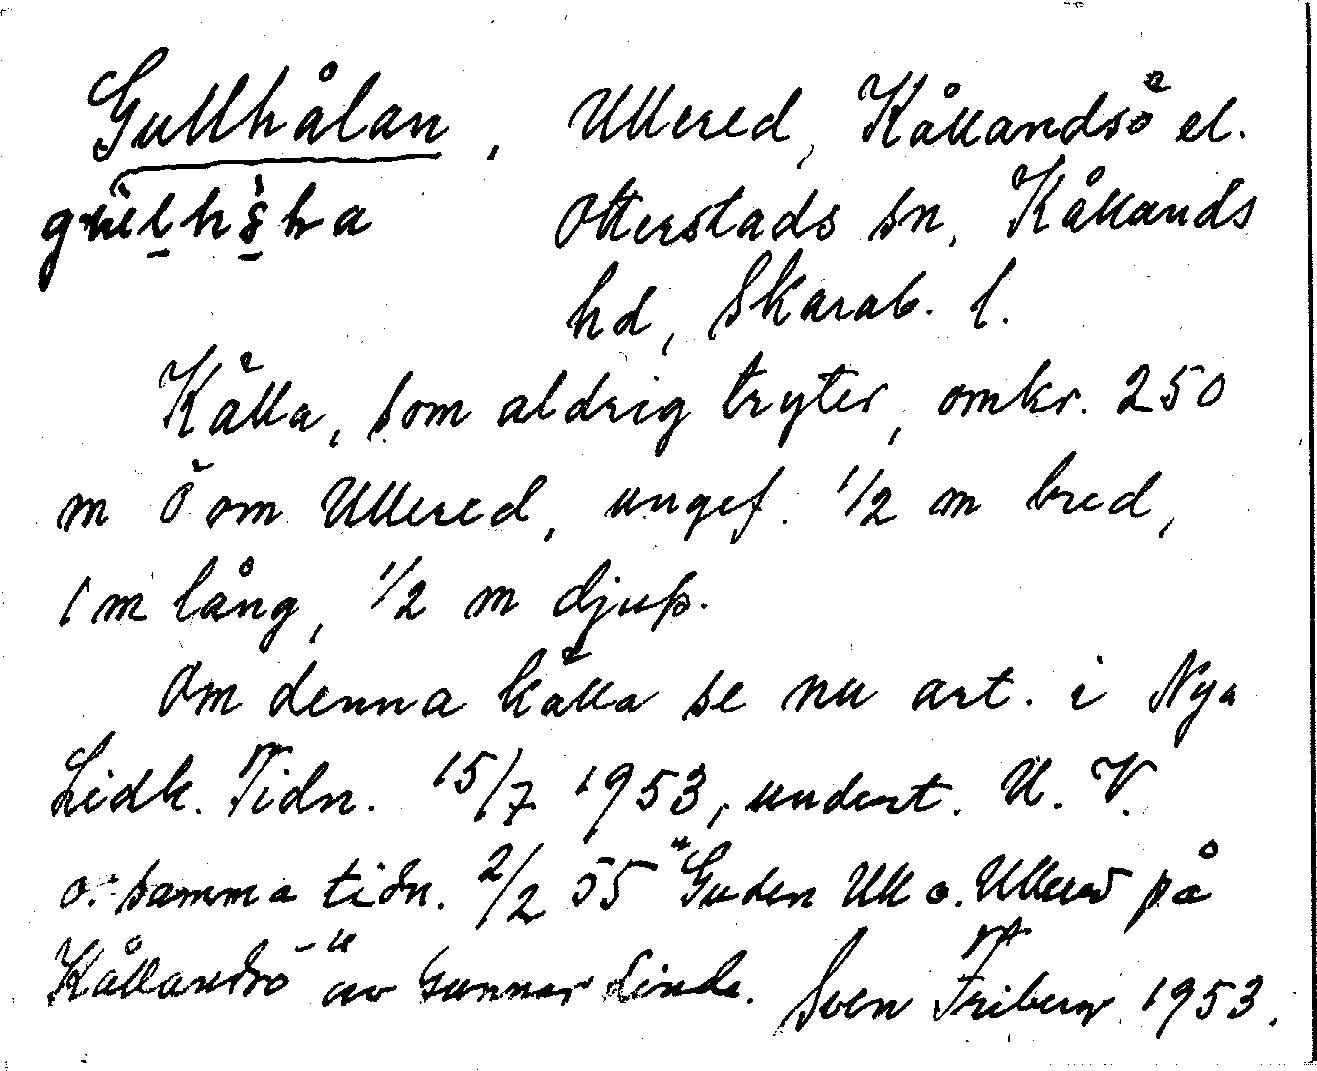 Gullhålan, Ullered, Kållandsö el.
Otterstads sn, Kållands
hd, Skarab. l.
Källa, som aldrig tryter, omkr. 250
m Ö om Ullered, ungef. 1/2 m bred,
1 m lång, 1/2 m djup.
Om denna källa se nu art. i Nya
Lidk. Tidn. 15/7 1953, undert. U. V.
o. samma tidn. 2/2 55 "Guden Ull o. Ullered på
Kållandsö" av Gunnar Linde. Sven Friberg 1953.